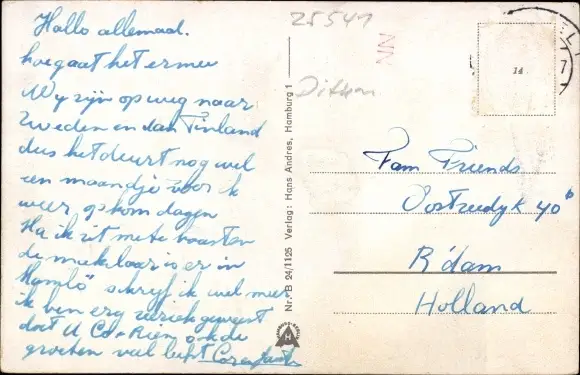 Hallo allemaal.
hoe gaat het ermee
Wy zijn op weg naar
Zweden en dan Finland
dus het duurt nog wel
een maandje voor ik
weer op kom dagen
Ha ik zit me te haasten
de
in
schryf ik wel meer
ik ben erg ziek geweest
dat U Co + Rien ook de
groeten veel liefs
25541
NN
14
7
Nr. B 24/1125 Verlag: Hans Andres, Hamburg 1
H
Fam Friends
Oostzeedyk 40b
R'dam
Holland